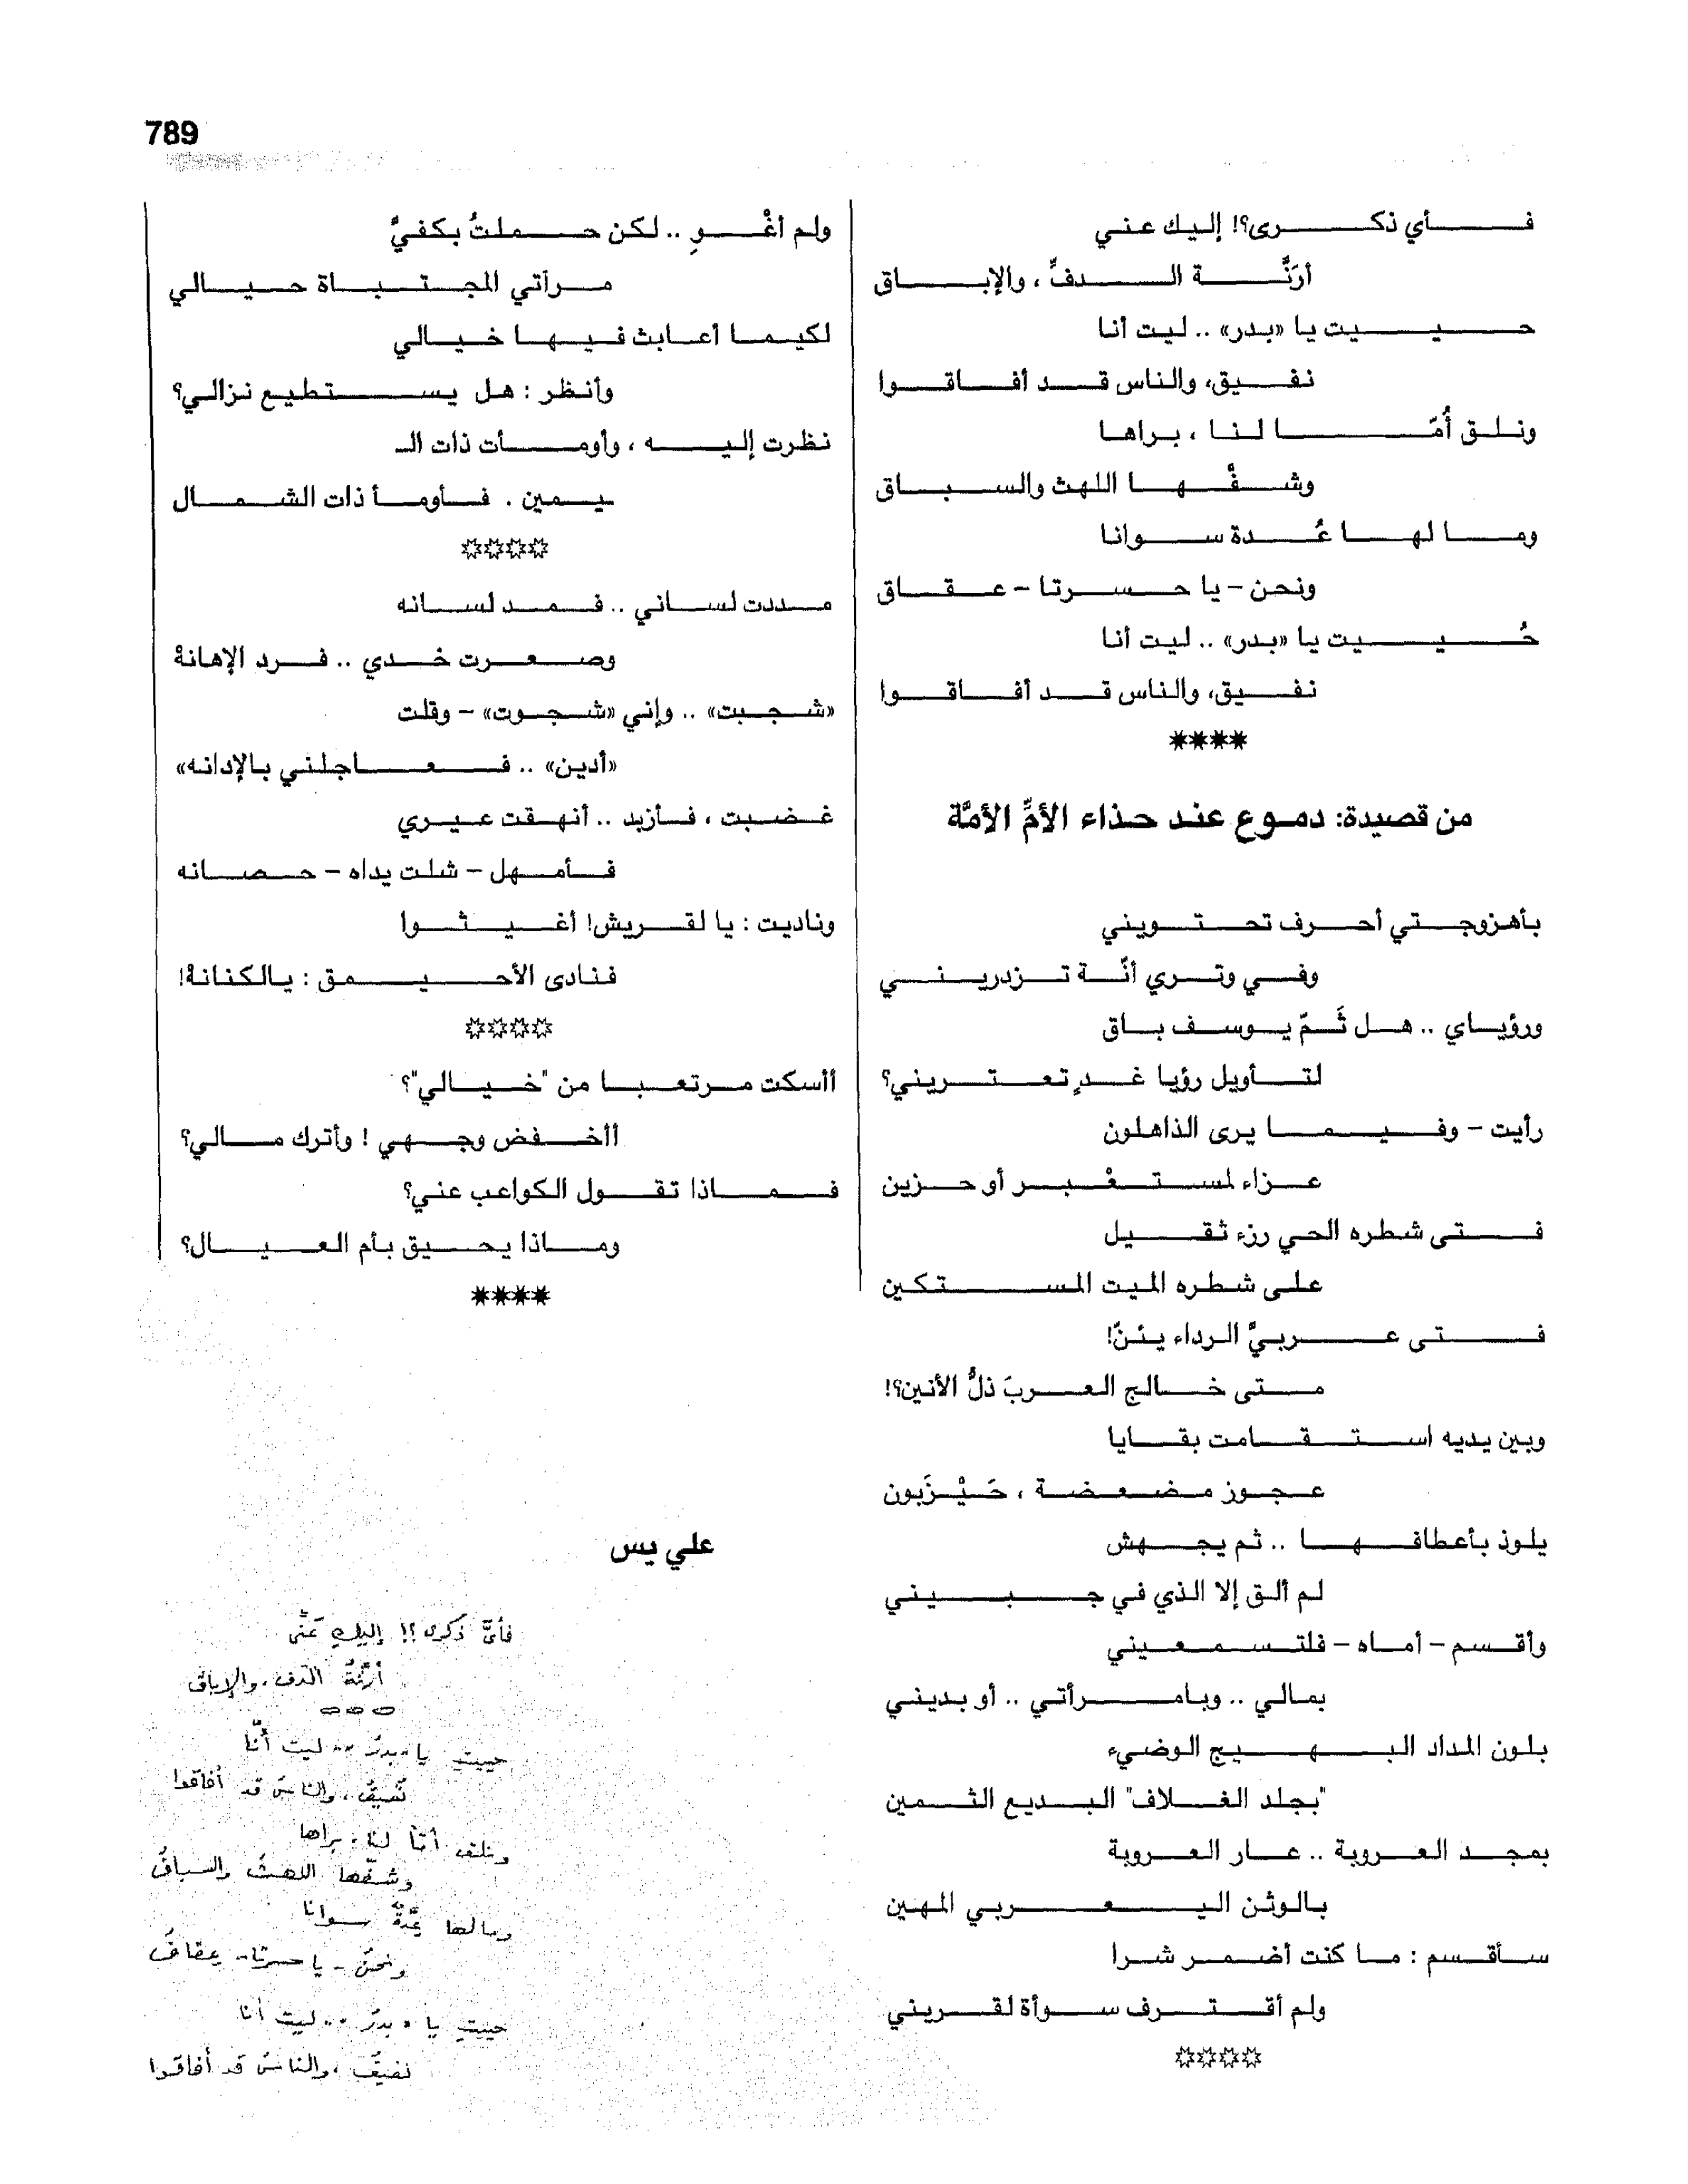 789
فأي ذكرى؟! إليك عني
أرَنَّة الدفِّ ، والإباق
حييت يا «بدر» .. ليت أنا
نفيق، والناس قد أفاقوا
ونلق أُمّا لنا ، براها
وشفّها اللهث والسباق
وما لها عُدة سوانا
ونحن - يا حسرتا - عقاق
حُييت يا «بدر» .. ليت أنا
نفيق، والناس قد أفاقوا
****
من قصيدة: دموع عند حذاء الأمِّ الأمَّة
بأهزوجتي أحرف تحتويني
وفي وتري أنّة تزدريني
ورؤياي .. هل ثَمّ يوسف باق
لتأويل رؤيا غدٍ تعتريني؟
رأيت - وفيما يرى الذاهلون
عزاء لمستعْبر أو حزين
فتى شطره الحي رزء ثقيل
على شطره الميت المستكين
فتى عربيَّ الرداء يئنّ!
متى خالج العربَ ذلُّ الأنين؟!
وبين يديه استقامت بقايا
عجوز مضعضة ، حَيْزَبون
يلوذ بأعطافها .. ثم يجهش
لم ألق إلا الذي في جبيني
وأقسم - أماه - فلتسمعيني
بمالي .. وبامرأتي .. أو بديني
بلون المداد البهيج الوضيء
"بجلد الغلاف" البديع الثمين
بمجد العروبة .. عار العروبة
بالوثن اليعربي المهين
سأقسم : ما كنت أضمر شرا
ولم أقترف سوأة لقريني
****
ولم أغْوِ .. لكن حملتُ بكفيَّ
مرآتي المجتباة حيالي
لكيما أعابث فيها خيالي
وأنظر : هل يستطيع نزالي؟
نظرت إليه ، وأومأت ذات الـ
ـيمين . فأومأ ذات الشمال
****
مددت لساني .. فمد لسانه
وصعرت خدي .. فرد الإهانهْ
«شجبت» .. وإني «شجوت» - وقلت
«أدين» .. فعاجلني بالإدانه»
غضبت ، فأزبد .. أنهقت عيري
فأمهل - شلت يداه - حصانه
وناديت : يا لقريش! أغيثوا
فنادى الأحيمق : يالكنانهْ!
****
أأسكت مرتعبا من "خيالي"؟
أأخفض وجهي ! وأترك مالي؟
فماذا تقول الكواعب عني؟
وماذا يحيق بأم العيال؟
****
علي يس
فأيَّ ذكرى؟! إليكِ عَنّي
أرَنَّةُ الدف، والإباق
حييتِ يا «بدرُ» .. ليت أنّا
نُفيقُ، والناسُ قد أفاقوا
ونلق أمّاً لنا، براها
وشفّها اللهثُ والسباقُ
وما لها عُدّةٌ سوانا
ونحنُ - يا حسرتا - عقاقُ
حييتِ يا «بدرُ» .. ليت أنا
نفيقُ، والناسُ قد أفاقوا